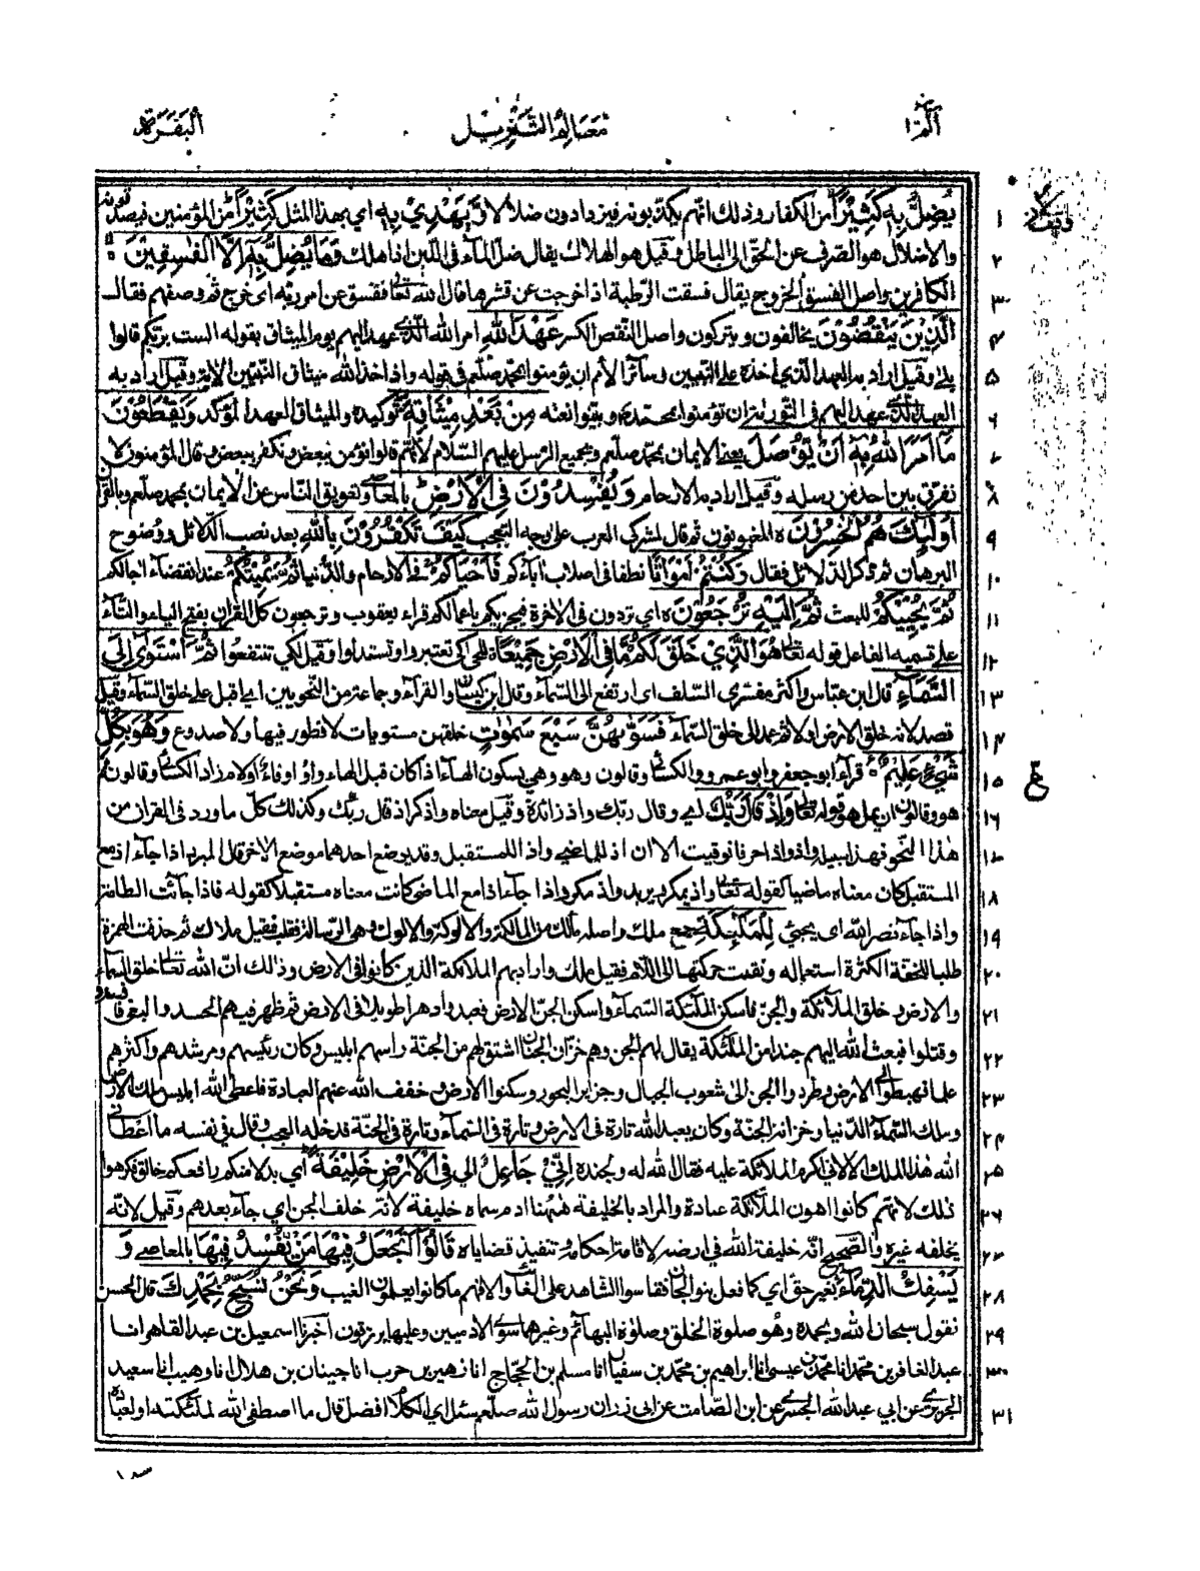 الٓمّٓ ١
معالم التنزيل
البقرة
١ يُضِلُّ بِهٖ كَثِيْرًا من الكفار وذلك انهم يكذبونه فيزدادون ضلالا وَّيَهْدِيْ بِهٖ اي بهذا المثل كَثِيْرًا من المؤمنين فيصدقونه
٢ والاضلال هو الصرف عن الحق الى الباطل وقيل هو الهلاك يقال ضل المآء في اللبن اذا هلك وَمَا يُضِلُّ بِهٖٓ اِلَّا الْفٰسِقِيْنَ ۙ
٣ الكافرين واصل الفسق الخروج يقال فسقت الرطبة اذا خرجت عن قشرها قال الله تعالى ففسق عن امر ربه اى خرج ثم وصفهم فقال
٤ الَّذِيْنَ يَنْقُضُوْنَ يخالفون ويتركون واصل النقض الكسر عَهْدَ اللّٰهِ امر الله الذي عهد اليهم يوم الميثاق بقوله الست بربكم قالوا
٥ بلى وقيل اراد به العهد الذي اخذه على النبيين وسآئر الامم ان يؤمنوا بمحمد صلعم في قوله واذ اخذ الله ميثاق النبيين الاية وقيل اراد به
٦ العهد الذي عهد اليهم في التورىة ان يؤمنوا بمحمد صلعم ويبينوا نعته مِنْ بَعْدِ مِيْثَاقِهٖ توكيده والميثاق العهد المؤكد وَيَقْطَعُوْنَ
٧ مَآ اَمَرَ اللّٰهُ بِهٖٓ اَنْ يُّوْصَلَ يعني الايمان بمحمد صلعم وبجميع الرسل عليهم السلام لانهم قالوا نؤمن ببعض ونكفر ببعض وقال المؤمنون لا
٨ نفرق بين احد من رسله وقيل اراد به الارحام وَيُفْسِدُوْنَ فِى الْاَرْضِ بالمعاصي وتعويق الناس عن الايمان بمحمد صلعم وبالقرآن
٩ اُولٰٓئِكَ هُمُ الْخٰسِرُوْنَ ٥ المغبونون ثم قال لمشركي العرب على وجه التعجب كَيْفَ تَكْفُرُوْنَ بِاللّٰهِ بعد نصب الدلآئل ووضوح
١٠ البرهان ثم ذكر الدلائل فقال وَكُنْتُمْ اَمْوَاتًا نطفا فى اصلاب اٰبآءكم فَاَحْيَاكُمْ في الارحام والدنيا ثُمَّ يُمِيْتُكُمْ عند انقضآء اجالكم
١١ ثُمَّ يُحْيِيْكُمْ للبعث ثُمَّ اِلَيْهِ تُرْجَعُوْنَ ٥ اى تردون فى الاخرة فيجزيكم باعمالكم قراء يعقوب وترجعون كل القرآن بفتح اليآء والتآء
١٢ على تسميه الفاعل قوله تعالى هُوَ الَّذِيْ خَلَقَ لَكُمْ مَّا فِى الْاَرْضِ جَمِيْعًا لكى تعتبروا وتستدلوا وقيل لكي تنتفعوا ثُمَّ اسْتَوٰٓى اِلَى
١٣ السَّمَآءِ قال ابن عباس واكثر مفسرى السلف اى ارتفع الى السمآء وقال ابن كيسان والفرآء وجماعة من النحويين اي اقبل على خلق السمآء وقيل
١٤ قصد لانه خلق الارض اولا ثم عمد الى خلق السمآء فَسَوّٰىهُنَّ سَبْعَ سَمٰوٰتٍ خلقهن مستويات لا فطور فيها ولا صدوع وَهُوَ بِكُلِّ
١٥ شَيْءٍ عَلِيْمٌ ۧ قرآء ابو جعفر وابو عمرو والكسائي وقالون وهو وهي بسكون الهآء اذا كان قبل الهاء واو او فاء او لام زاد الكسائي وقالون ثم
١٦ هو وقالون ان يمل هو قوله تعالى وَاِذْ قَالَ رَبُّكَ اي وقال ربك واذ زائدة وقيل معناه واذكر اذ قال ربك وكذلك كل ما ورد في القران من
١٧ هذا النحو فهذا سبيله واذ واذا حرفا توقيت الا ان اذ للماضي واذا للمستقبل وقد يوضع احدهما موضع الاخر قال المبرد اذا جآء اذ مع
١٨ المستقبل كان معناه ماضيا كقوله تعالى واذ يمكر بك يريد واذ مكروا واذا جآء اذا مع الماضى كانت معناه مستقبلا كقوله فاذا جآئت الطامة
١٩ واذا جآء نصر الله اى يجيئ لِلْمَلٰٓئِكَةِ جمع ملك واصله مألك من المالكة والالوكة والالوك وهى الرسالة فقلب فقيل ملاك ثم حذفت الهمزة
٢٠ طلبا للخفة الكثرة استعماله ونقلت حركتها الى اللام فقيل ملك واراد بهم الملائكة الذين كانوا فى الارض وذلك ان الله تعالى خلق السمآء
٢١ والارض وخلق الملآئكة والجن فاسكن الملئكة السمآء واسكن الجن الارض فعبدوا دهرا طويلا فى الارض ثم ظهر فيهم الحسد والبغى فافسدوا
٢٢ وقتلوا فبعث الله اليهم جندا من الملئكة يقال لهم الجن وهم خزان الجنان اشتق لهم من الجنة راسهم ابليس وكان رئيسهم ومرشدهم واكثرهم
٢٣ علما فهبطوا الى الارض وطردوا الجن الى شعوب الجبال وجزاير البحور وسكنوا الارض وخفف الله عنهم العبادة فاعطى الله ابليس ملك الارض
٢٤ وملك السمآء الدنيا وخزانة الجنة وكان يعبد الله تارة فى الارض وتارة في السمآء وتارة في الجنة فدخله العجب وقال في نفسه ما اعطانى
٢٥ الله هذا الملك الا لاني اكرم الملائكة عليه فقال الله له ولجنده اِنِّيْ جَاعِلٌ اي فِى الْاَرْضِ خَلِيْفَةً اي بدلا منكم رافعكم خالق فكرهوا
٢٦ ذلك لانهم كانوا اهون الملآئكة عبادة والمراد بالخليفة ههنا ادم سماه خليفة لانه خلف الجن اي جآء بعدهم وقيل لانه
٢٧ يخلفه غيره والصحيح انه خليفة الله في ارضه لاقامة احكامه وتنفيذ قضاياه قَالُوْٓا اَتَجْعَلُ فِيْهَا مَنْ يُّفْسِدُ فِيْهَا بالمعاصي وَ
٢٨ يَسْفِكُ الدِّمَآءَ بغير حق اي كما فعل بنو الجان فقاسوا الشاهد على الغائب والا فهم ما كانوا يعلمون الغيب وَنَحْنُ نُسَبِّحُ بِحَمْدِكَ قال الحسن
٢٩ نقول سبحان الله وبحمده وهو صلوة الخلق وصلوة البهآئم وغيرها سوى الادميين وعليها يرزقون اخبرنا اسمعيل بن عبد القاهر انا
٣٠ عبد الغافر بن محمد انا محمد بن عيسى انا ابراهيم بن محمد بن سفيان انا مسلم بن الحجاج انا زهير بن حرب انا حبان بن هلال انا وهيب انا سعيد
٣١ الجريري عن ابي عبد الله الجسري عن ابن الصامت عن ابى ذر ان رسول الله صلعم سئل اي الكلام افضل قال ما اصطفى الله لملئكته او لعباده
ع